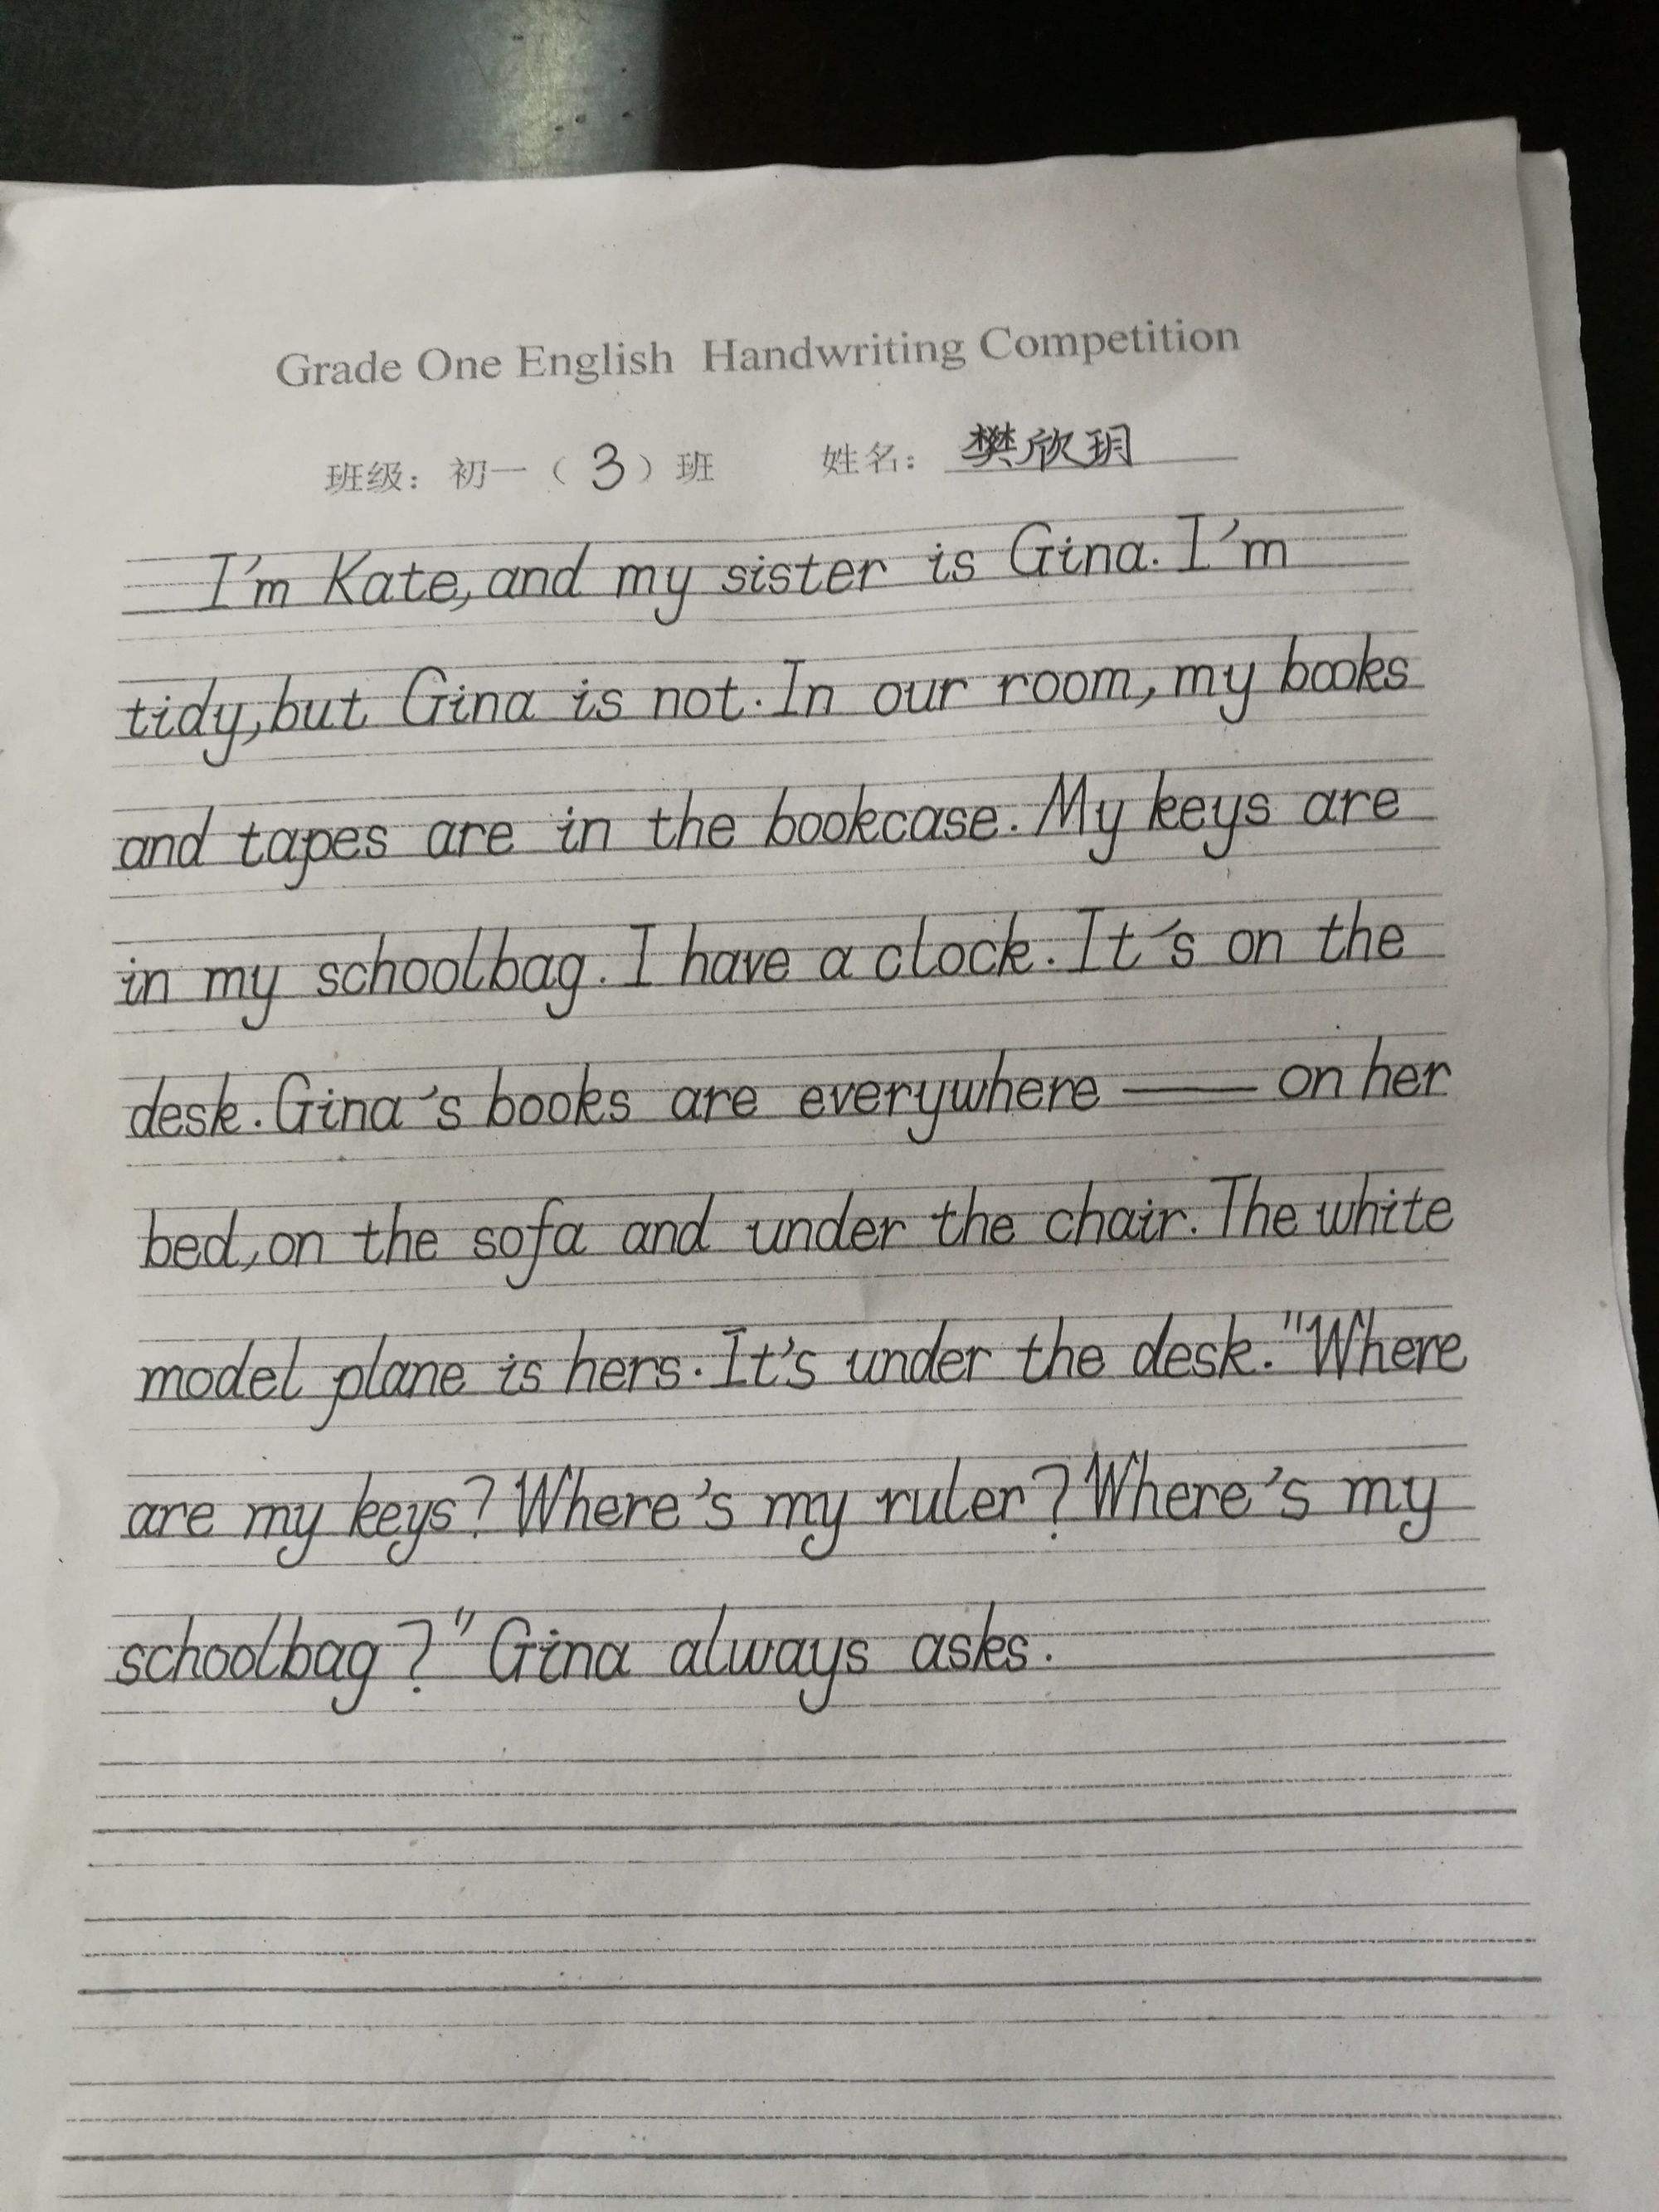 Grade One English Handwriting Competition
班级：初一（3）班 姓名：樊欣玥
I'm Kate, and my sister is Gina. I'm
tidy, but Gina is not. In our room, my books
and tapes are in the bookcase. My keys are
in my schoolbag. I have a clock. It's on the
desk. Gina's books are everywhere — on her
bed, on the sofa and under the chair. The white
model plane is hers. It's under the desk. "Where
are my keys? Where's my ruler? Where's my
schoolbag?" Gina always asks.